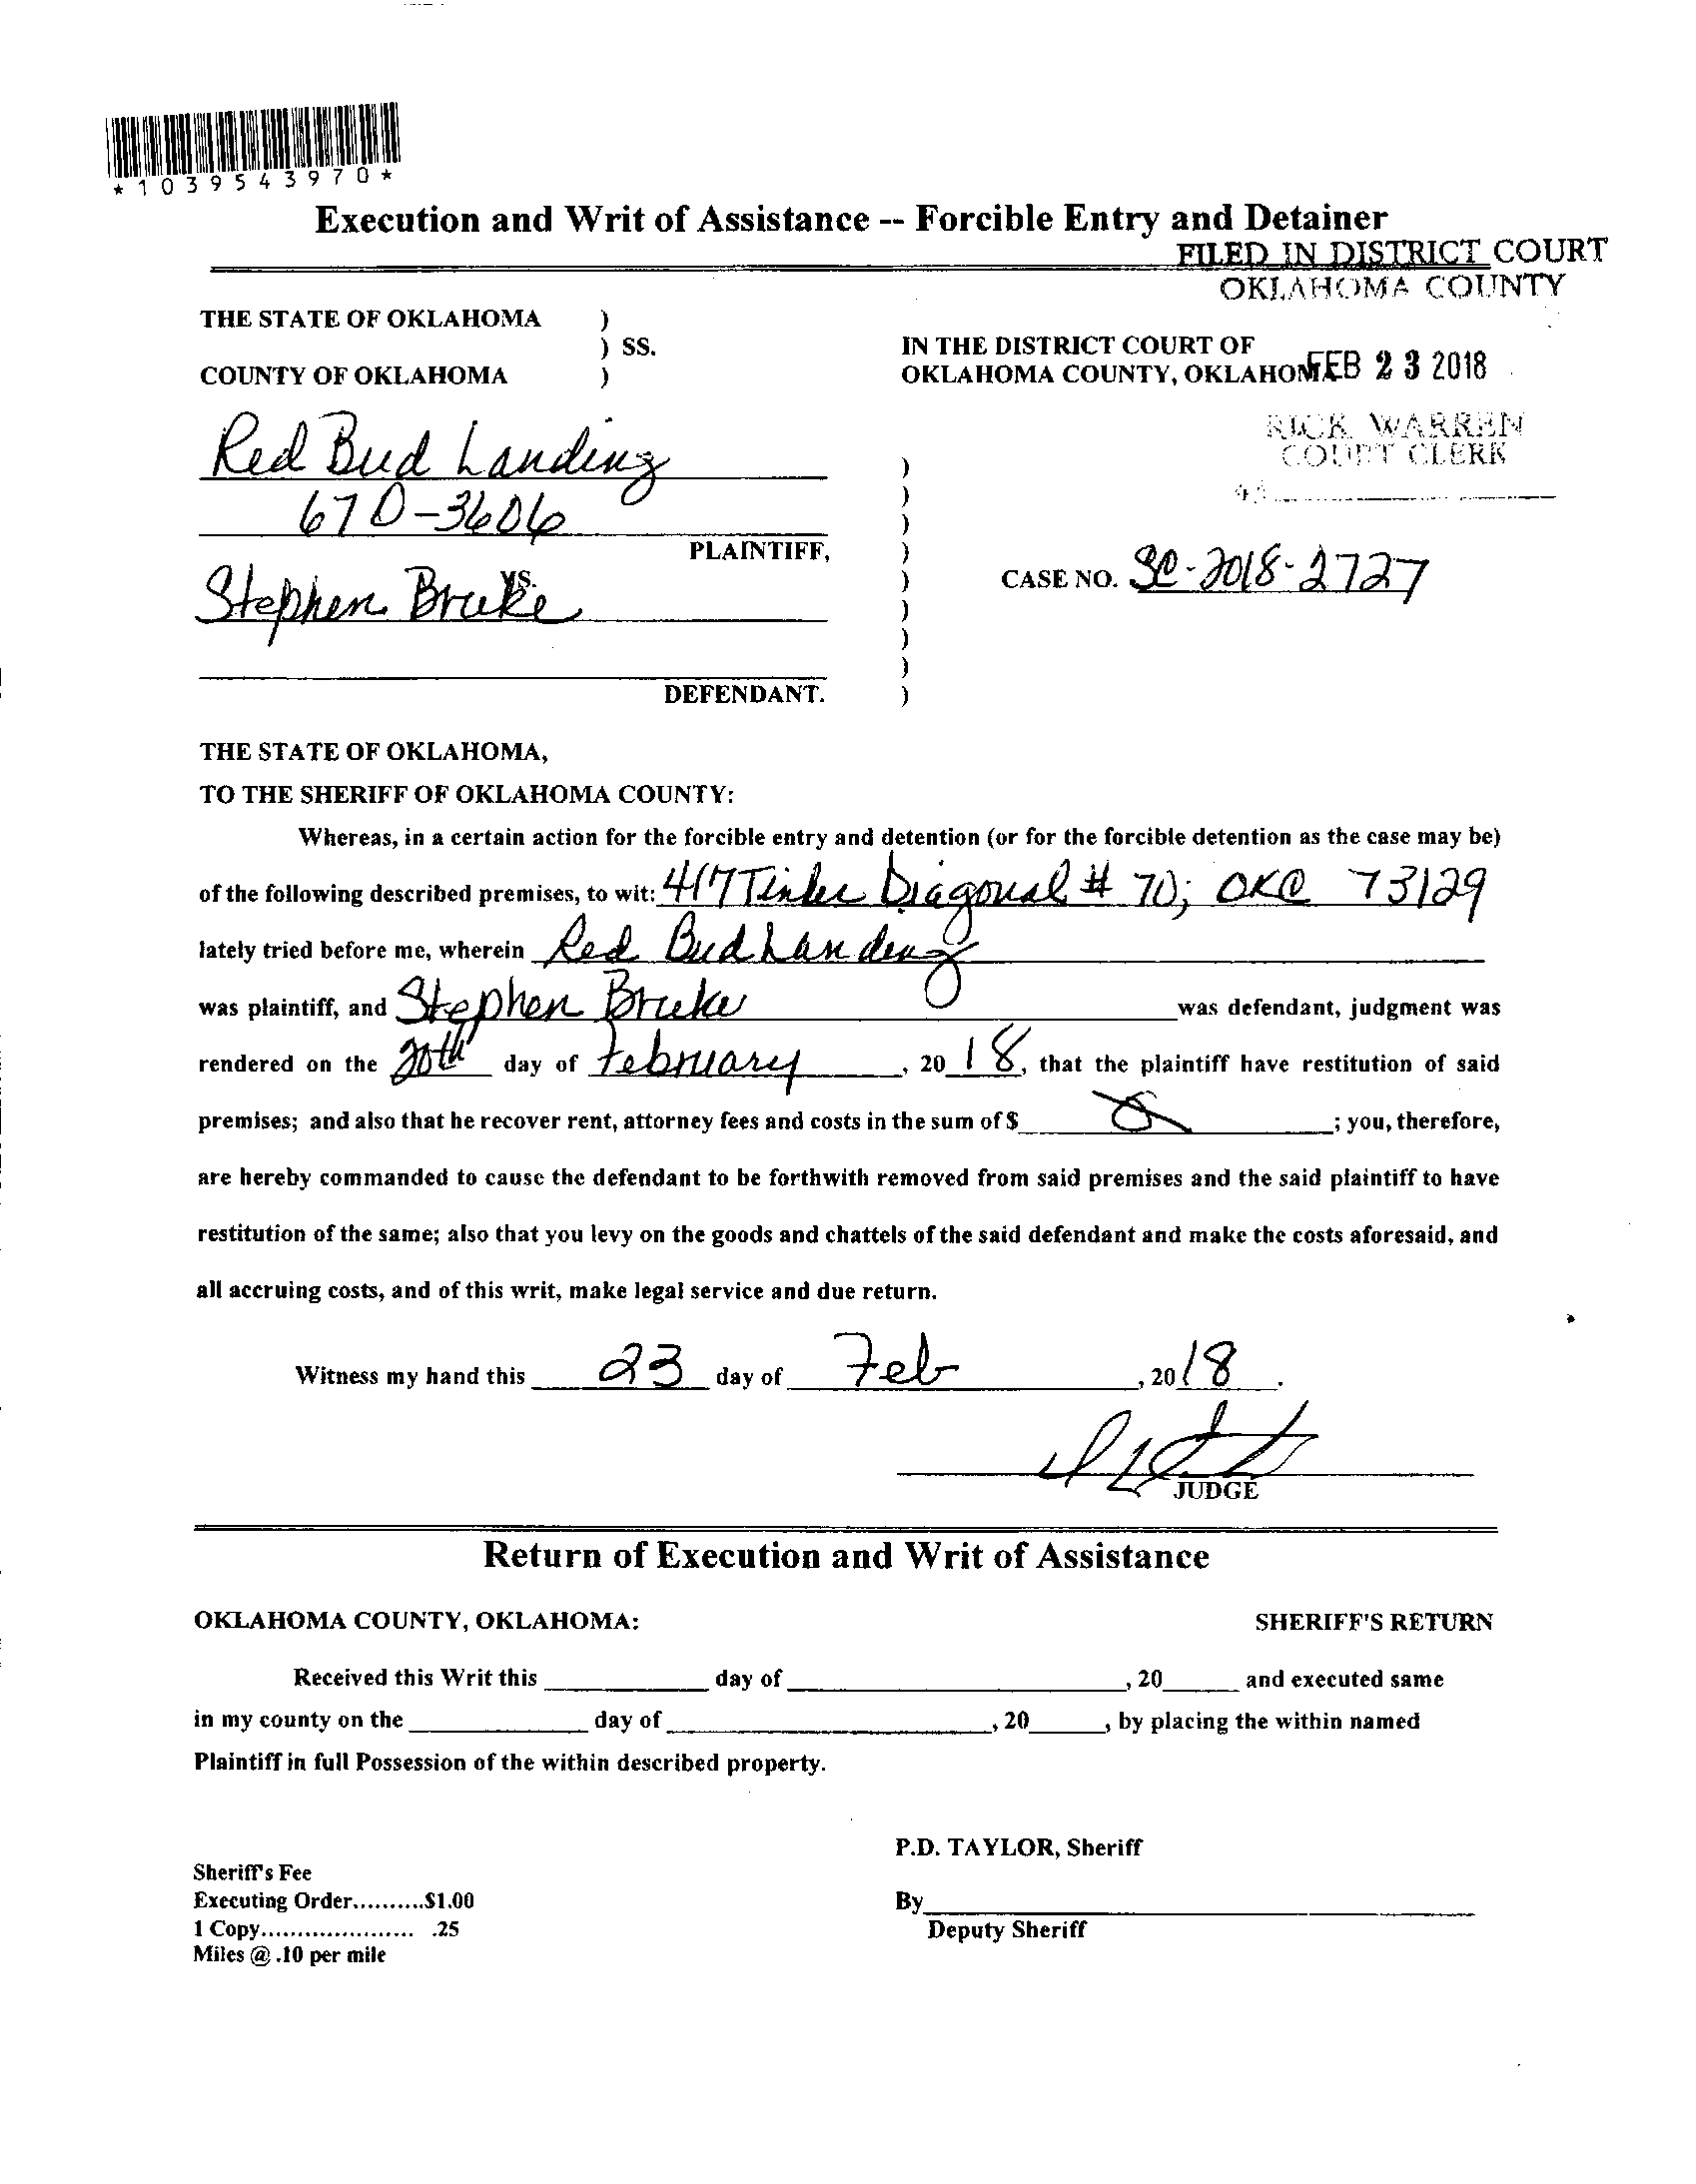 *1039543970*
Execution and Writ of Assistance -- Forcible Entry and Detainer
FILED IN DISTRICT COURT
OKLAHOMA COUNTY
THE STATE OF OKLAHOMA )
) SS.
COUNTY OF OKLAHOMA )
IN THE DISTRICT COURT OF
OKLAHOMA COUNTY, OKLAHOMA
FEB 23 2018
RICK WARREN
COURT CLERK
Red Bud Landing
670-3606
PLAINTIFF,
VS.
Stephen Bruke
CASE NO. SC-2018-2727
DEFENDANT.
THE STATE OF OKLAHOMA,
TO THE SHERIFF OF OKLAHOMA COUNTY:
Whereas, in a certain action for the forcible entry and detention (or for the forcible detention as the case may be)
of the following described premises, to wit: 417 Tinker Diagonal # 70; OKC 73129
lately tried before me, wherein Red Bud Landing
was plaintiff, and Stephen Bruke was defendant, judgment was
rendered on the 20th day of February, 20 18, that the plaintiff have restitution of said
premises; and also that he recover rent, attorney fees and costs in the sum of $ ; you, therefore,
are hereby commanded to cause the defendant to be forthwith removed from said premises and the said plaintiff to have
restitution of the same; also that you levy on the goods and chattels of the said defendant and make the costs aforesaid, and
all accruing costs, and of this writ, make legal service and due return.
Witness my hand this 23 day of Feb, 20 18.
JUDGE
Return of Execution and Writ of Assistance
OKLAHOMA COUNTY, OKLAHOMA: SHERIFF'S RETURN
Received this Writ this ______ day of ______, 20____ and executed same
in my county on the ______ day of ______, 20____, by placing the within named
Plaintiff in full Possession of the within described property.
P.D. TAYLOR, Sheriff
Sheriff's Fee
Executing Order..........$1.00
1 Copy..................... .25
Miles @ .10 per mile
By______
Deputy Sheriff